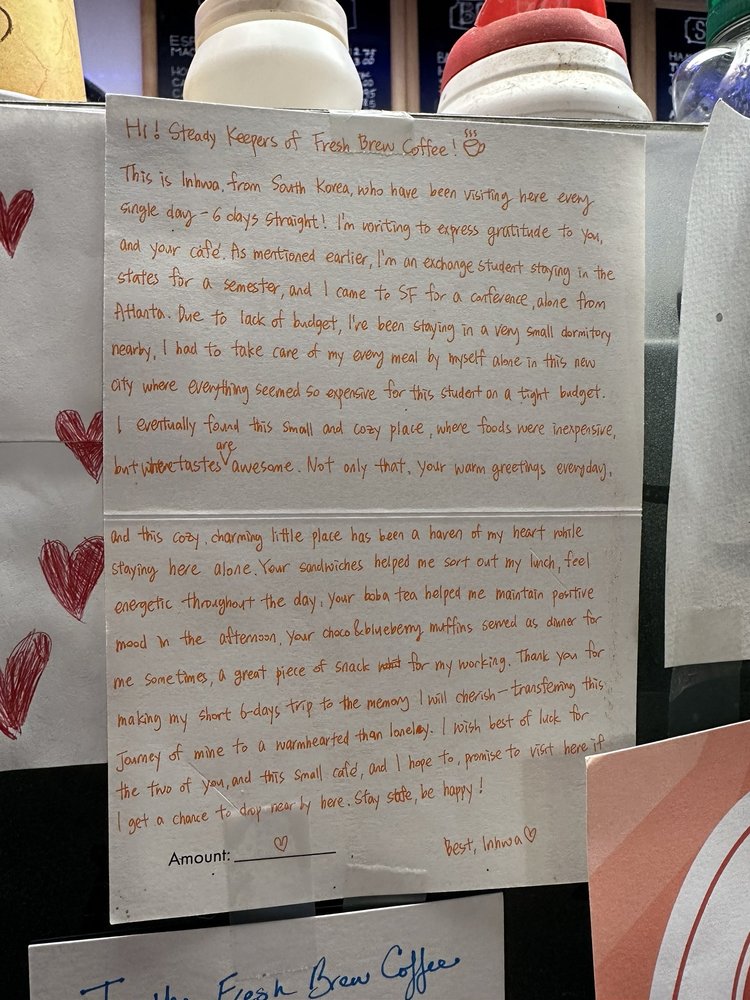 Hi! Steady Keepers of Fresh Brew Coffee!
This is Inhwa, from South Korea, who have been visiting here every
single day - 6 days straight! I'm writing to express gratitude to you,
and your café. As mentioned earlier, I'm an exchange student staying in the
states for a semester, and I came to SF for a conference, alone from
Atlanta. Due to lack of budget, I've been staying in a very small dormitory
nearby, I had to take care of my every meal by myself alone in this new
city where everything seemed so expensive for this student on a tight budget.
I eventually found this small and cozy place, where foods were inexpensive,
but where tastes are awesome. Not only that, your warm greetings everyday,
and this cozy, charming little place has been a haven of my heart while
staying here alone. Your sandwiches helped me sort out my lunch, feel
energetic throughout the day, your boba tea helped me maintain positive
mood in the afternoon. Your choco&blueberry muffins served as dinner for
me sometimes, a great piece of snack for my working. Thank you for
making my short 6-days trip to the memory I will cherish - transferring this
journey of mine to a warmhearted than lonely. I wish best of luck for
the two of you, and this small café, and I hope to, promise to visit here if
I get a chance to drop near by here. Stay safe, be happy!
Amount:
Best, Inhwa
To the Fresh Brew Coffee